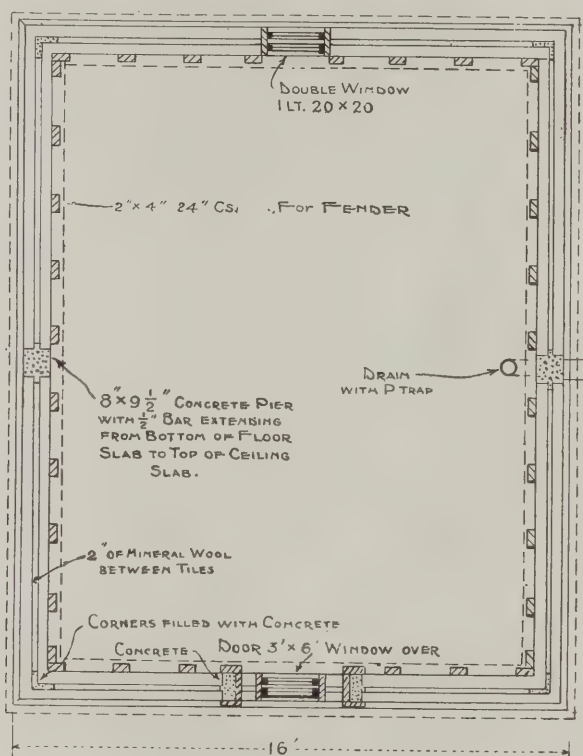 DOUBLE WINDOW
1 LT. 20 × 20
2"× 4" 24" CS. FOR FENDER
DRAIN
WITH P TRAP
8"× 9 1/2" CONCRETE PIER
WITH 1/2" BAR EXTENDING
FROM BOTTOM OF FLOOR
SLAB TO TOP OF CEILING
SLAB.
2" OF MINERAL WOOL
BETWEEN TILES
CORNERS FILLED WITH CONCRETE
CONCRETE DOOR 3'× 6' WINDOW OVER
16'